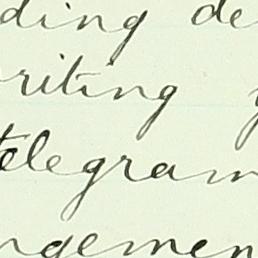 ding de
riting
telegram
ngemen